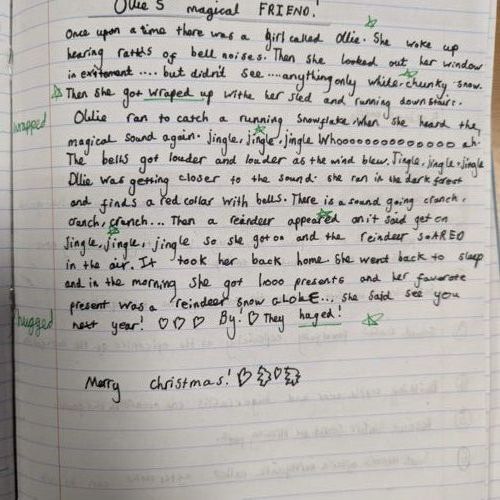 Ollie's magical FRIEND!
Once upon a time there was a girl called Ollie. She woke up
hearing rattls of bell noises. Then she looked out her window
in exitement .... but didn't see .... anything only white, chunky snow.
Then she got wraped up withe her sled and running down stairs.
wrapped
Ollie ran to catch a running snowflake. When she heard the,
magical sound again. jingle, jingle, jingle Whoooooooooooooo ah.
The bells got louder and louder as the wind blew. Jingle, jingle, jingle
Ollie was getting closer to the sound. she ran in the dark forest
and finds a red collar with bells. There is a sound going cranch,
cranch, cranch... Then a reindeer appeared on it said get on
jingle, jingle, jingle so she got on and the reindeer soared
in the air. It took her back home. She went back to sleep
and in the morning she got 1000 presents and her favorate
present was a reindeer snow GLOBE... she said see you
next year! ♡ ♡ ♡ By! ♡ They haged!
hugged
Merry christmas!